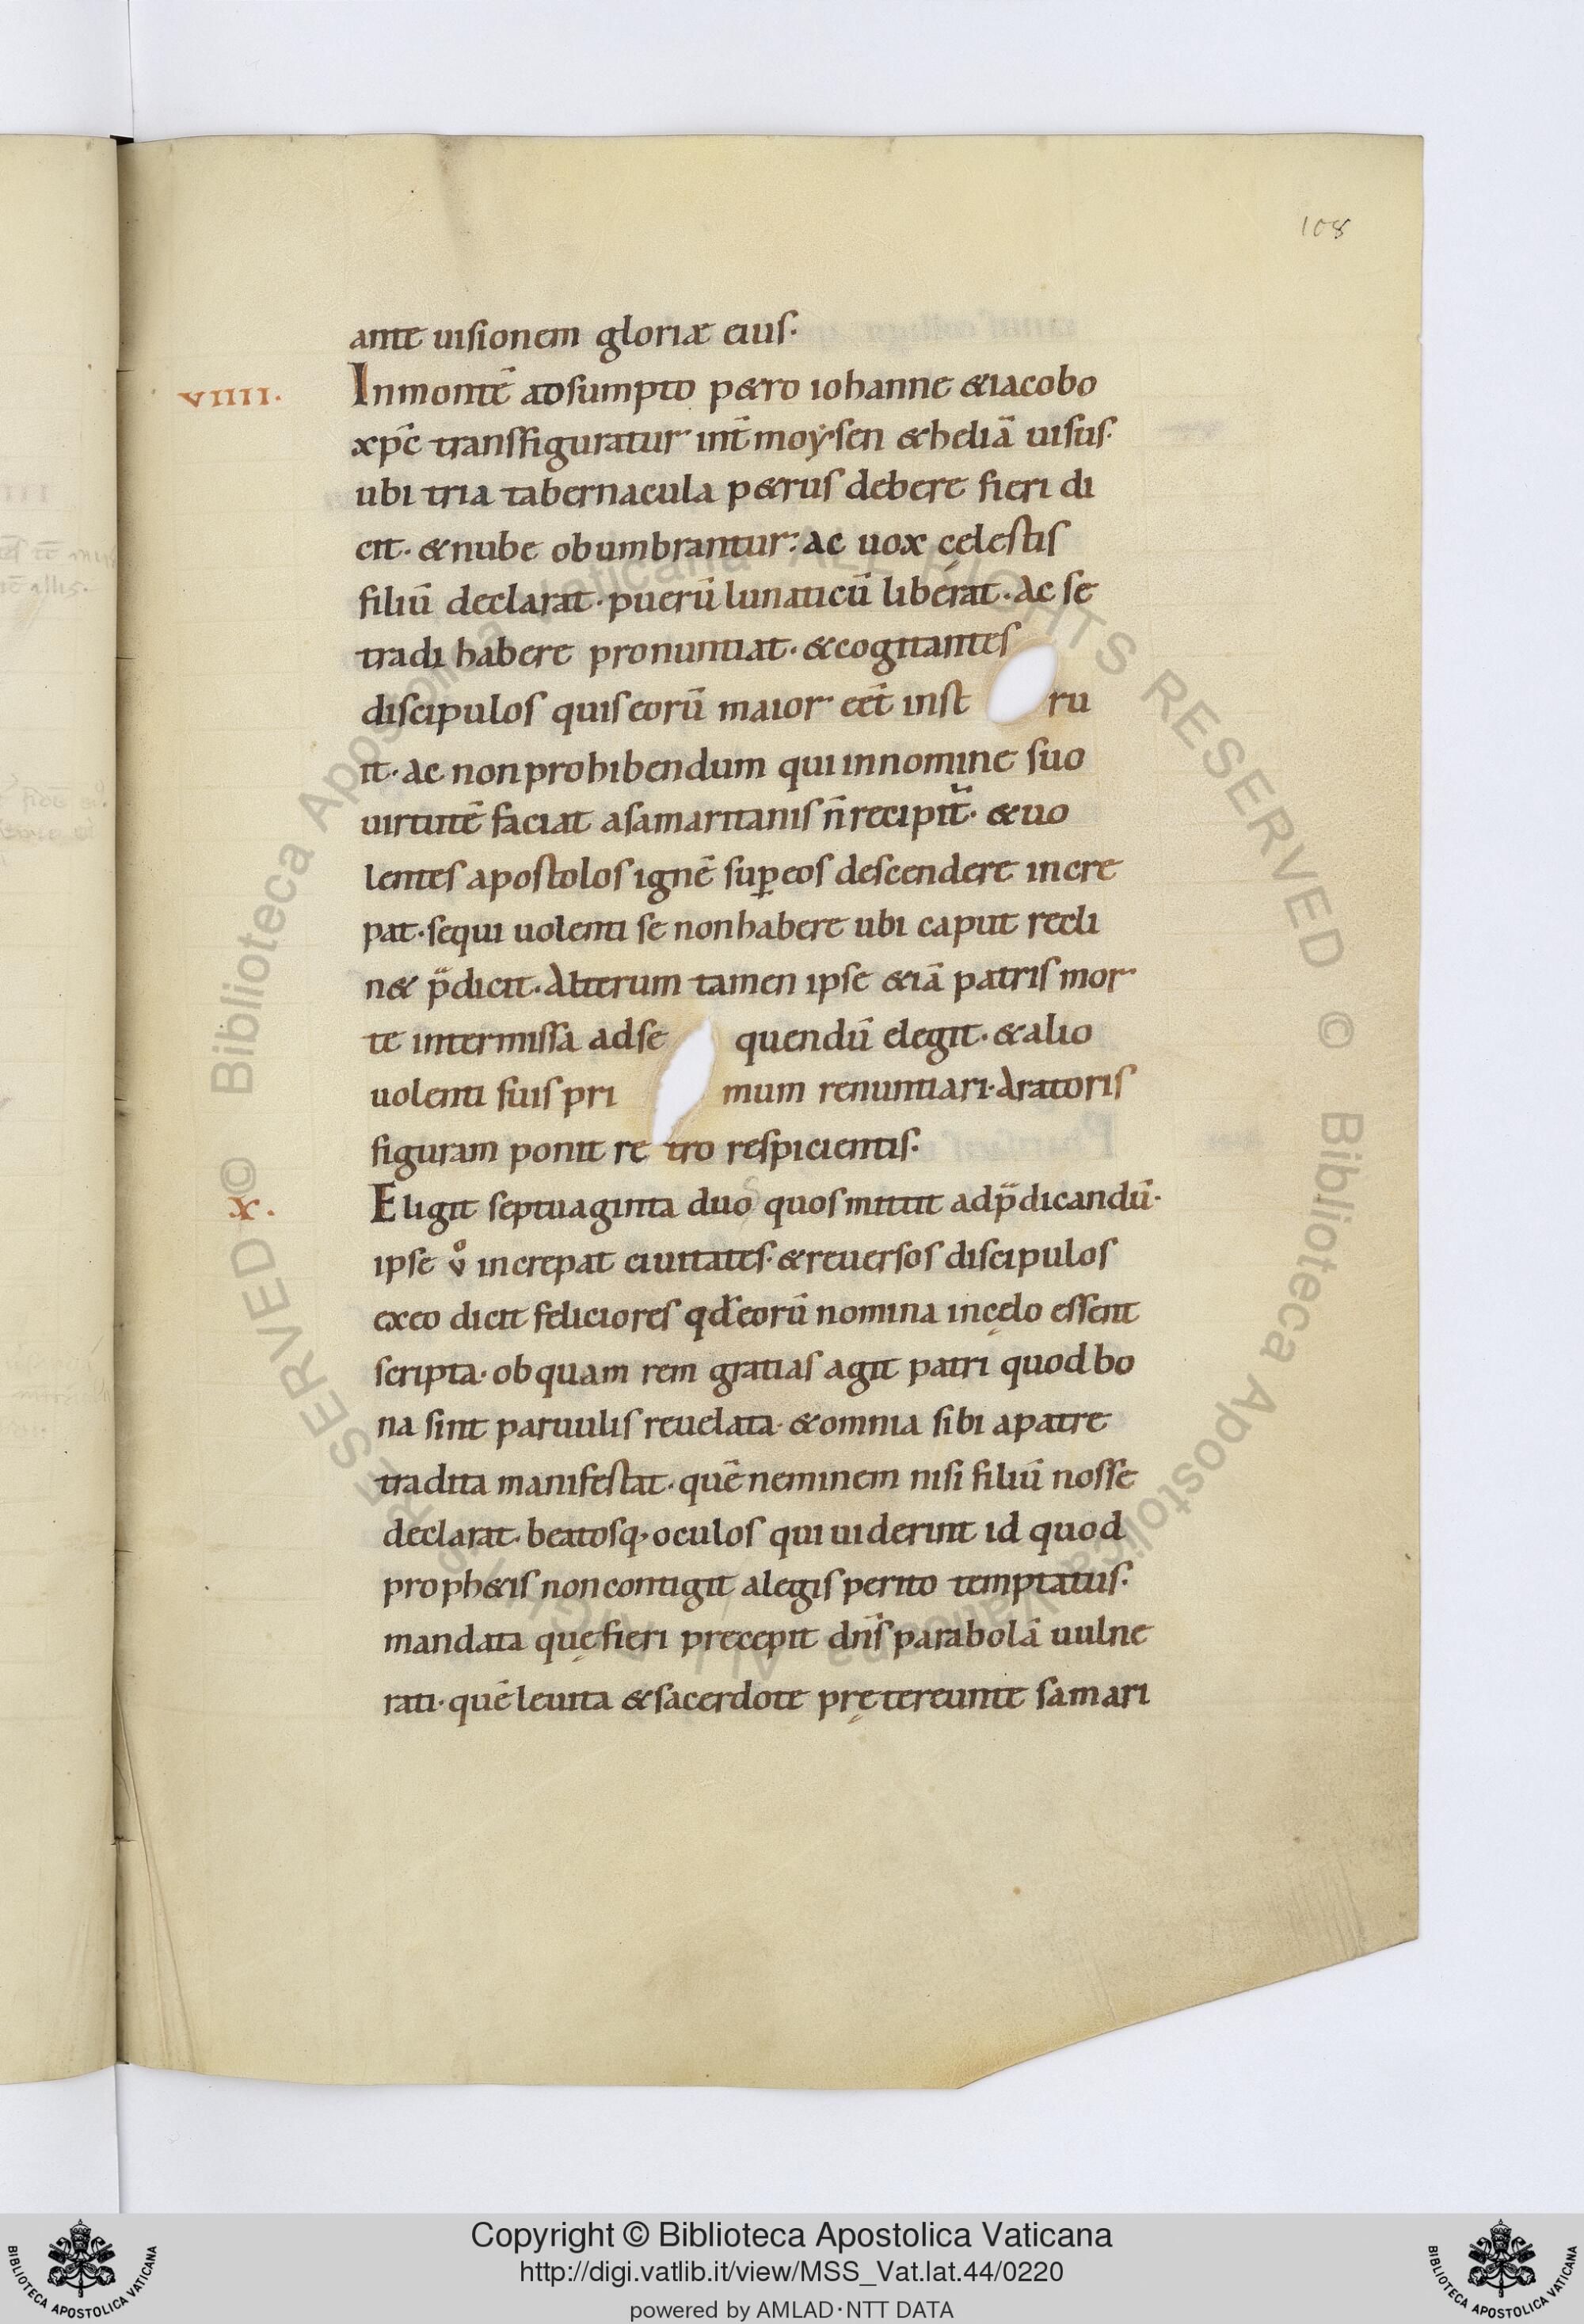 108
ante uisionem gloriæ eius·
VIIII. Inmontē adsumpto p&ro iohanne &iacobo
xp̄c transfiguratur int̄ moẏsen &heliā uisus·
ubi tria tabernacula p&rus debere fieri di
cit· &nube obumbrantur: ac uox cęlestis
filiū declarat· puerū lunaticū liberat· Ac se
tradi habere pronuntiat· &cogitantes
discipulos quis eorū maior eēt inst ru
it· ac non prohibendum qui innomine suo
uirtutē faciat asamaritanis n̄ recipit᷑· &uo
lentes apostolos ignē suꝑ eos descendere incre
pat· sequi uolenti se non habere ubi caput recli
n& p̈dicit· Alterum tamen ipse &iā patris mor
te intermissa adse quendū elegit· &alio
uolenti suis pri mum renuntiari· Aratoris
figuram ponit re tro respicientis·
X. Eligit septuaginta duo quos mittit adp̈dicandū·
ipse v̊ increpat ciuitates· &reuersos discipulos
exeo dicit feliciores qd̄ eorū nomina incęlo essent
scripta· ob quam rem gratias agit patri quod bo
na sint paruulis reuelata· &omnia sibi apatre
tradita manifestat· quē neminem nisi filiū nosse
declarat· beatosq· oculos qui uiderint id quod
proph&is non contigit alegis perito temptatus·
mandata quę fieri precepit dn̄s parabolā uulne
rati· quē leuita &sacerdote prętereunte samari
© Biblioteca Apostolica Vaticana ALL RIGHTS RESERVED © Biblioteca Apostolica Vaticana ALL RIGHTS RESERVED
Copyright © Biblioteca Apostolica Vaticana
http://digi.vatlib.it/view/MSS_Vat.lat.44/0220
powered by AMLAD·NTT DATA
BIBLIOTECA APOSTOLICA VATICANA
BIBLIOTECA APOSTOLICA VATICANA